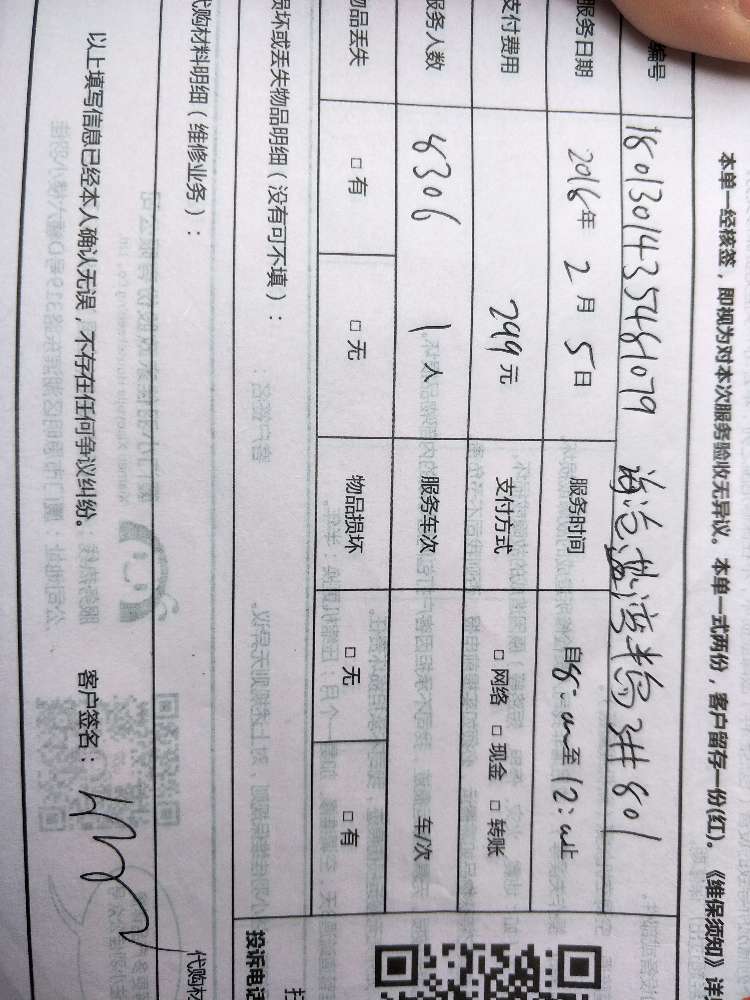 本单一经核签，即视为对本次服务验收无异议。本单一式两份，客户留存一份(红)。《维保须知》详
编号 1801301435481079
服务日期 2018年 2月 5日 服务时间 自8:00至12:00止
支付费用 299元 支付方式 □ 网络 □ 现金 □ 转账
服务人数 8306 1 人 服务车次 车/次
物品丢失 □ 有 □ 无 物品损坏 □ 无 □ 有
损坏或丢失物品明细（没有可不填）：
代购材料明细（维修业务）：
以上填写信息已经本人确认无误，不存在任何争议纠纷。 客户签名：
投诉电话
代购材